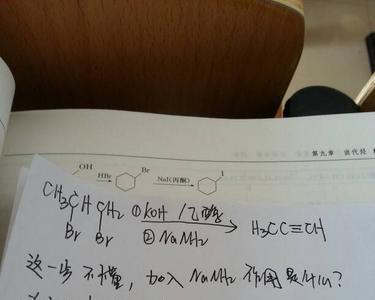 第九章 卤代烃
OH
HBr Br NaI(丙酮) I
CH₃CHCH₂ ①KOH/乙醇 H₃CC≡CH
Br Br ②NaNH₂
这一步不懂，加入NaNH₂作用是什么？